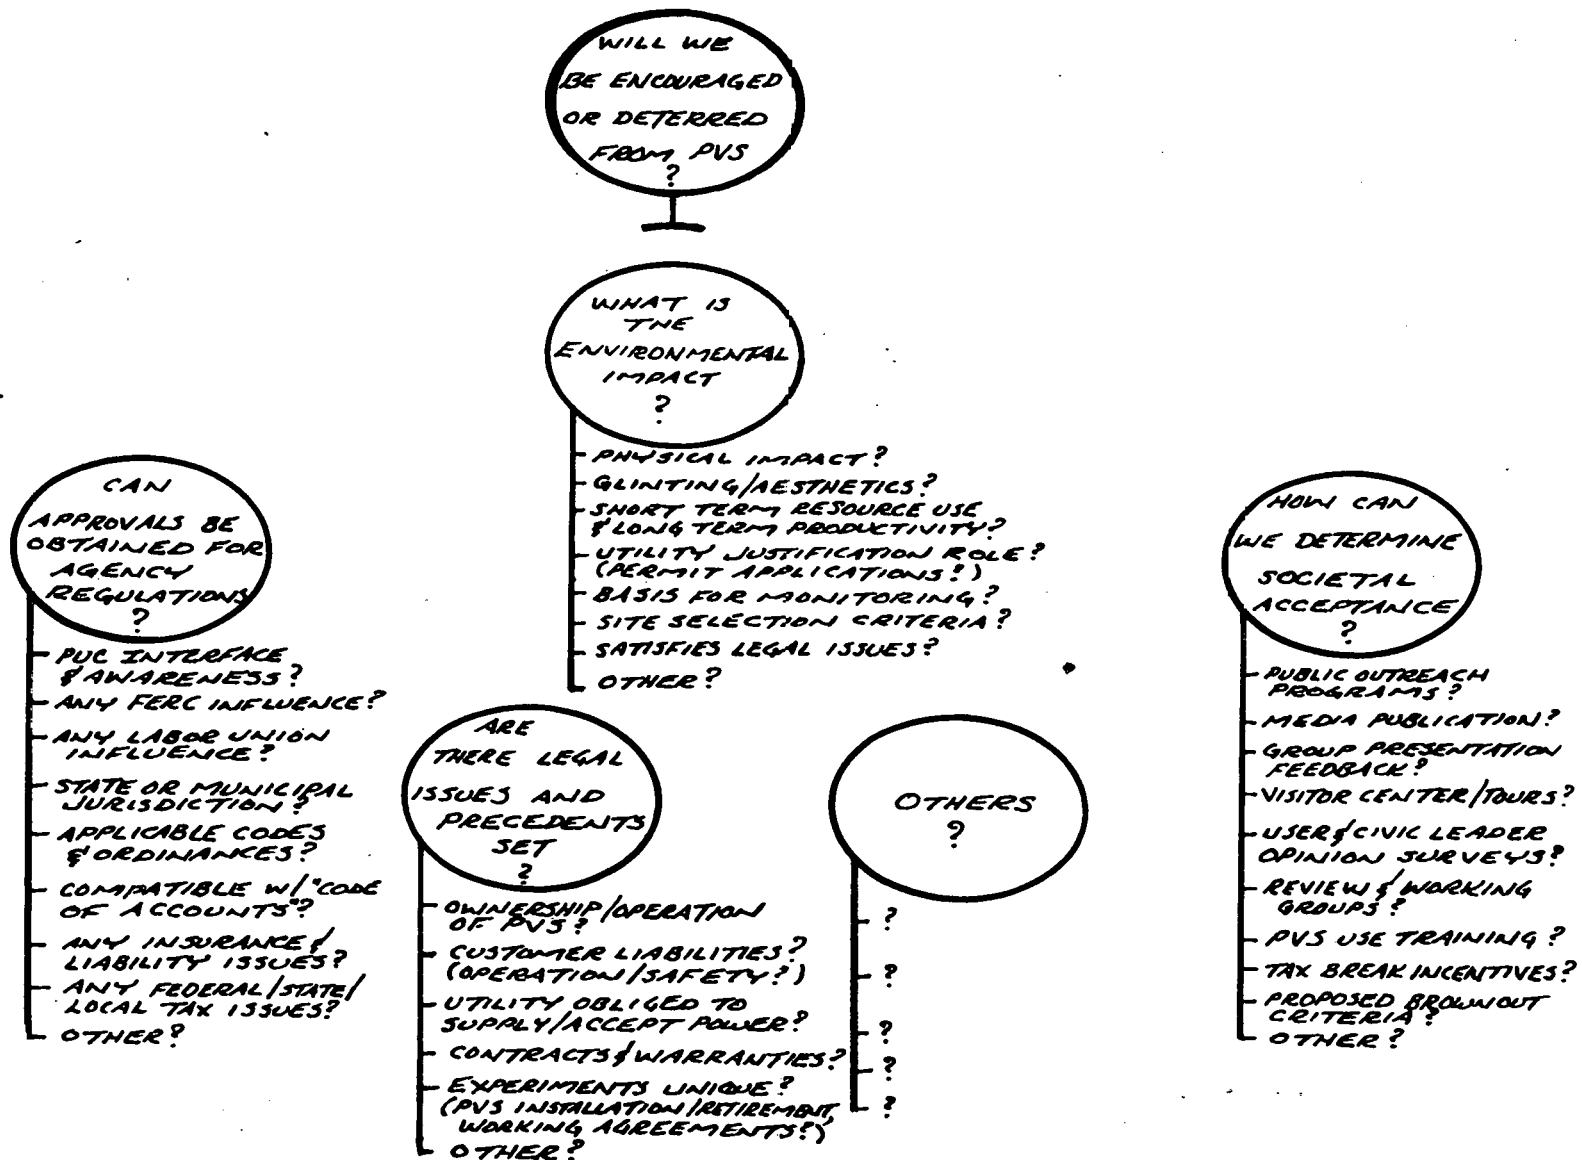 WILL WE
BE ENCOURAGED
OR DETERRED
FROM PVS
?
WHAT IS
THE
ENVIRONMENTAL
IMPACT
?
PHYSICAL IMPACT?
GLINTING/AESTHETICS?
SHORT TERM RESOURCE USE
& LONG TERM PRODUCTIVITY?
UTILITY JUSTIFICATION ROLE?
(PERMIT APPLICATIONS?)
BASIS FOR MONITORING?
SITE SELECTION CRITERIA?
SATISFIES LEGAL ISSUES?
OTHER?
CAN
APPROVALS BE
OBTAINED FOR
AGENCY
REGULATIONS
?
PUC INTERFACE
& AWARENESS?
ANY FERC INFLUENCE?
ANY LABOR UNION
INFLUENCE?
STATE OR MUNICIPAL
JURISDICTION?
APPLICABLE CODES
& ORDINANCES?
COMPATIBLE W/"CODE
OF ACCOUNTS"?
ANY INSURANCE &
LIABILITY ISSUES?
ANY FEDERAL/STATE/
LOCAL TAX ISSUES?
OTHER?
ARE
THERE LEGAL
ISSUES AND
PRECEDENTS
SET
?
OWNERSHIP/OPERATION
OF PVS?
CUSTOMER LIABILITIES?
(OPERATION/SAFETY?)
UTILITY OBLIGED TO
SUPPLY/ACCEPT POWER?
CONTRACTS & WARRANTIES?
EXPERIMENTS UNIQUE?
(PVS INSTALLATION/RETIREMENT,
WORKING AGREEMENTS?)
OTHER?
OTHERS
?
?
?
?
?
?
HOW CAN
WE DETERMINE
SOCIETAL
ACCEPTANCE
?
PUBLIC OUTREACH
PROGRAMS?
MEDIA PUBLICATION?
GROUP PRESENTATION
FEEDBACK?
VISITOR CENTER/TOURS?
USER & CIVIC LEADER
OPINION SURVEYS?
REVIEW & WORKING
GROUPS?
PVS USE TRAINING?
TAX BREAK INCENTIVES?
PROPOSED BROWNOUT
CRITERIA?
OTHER?